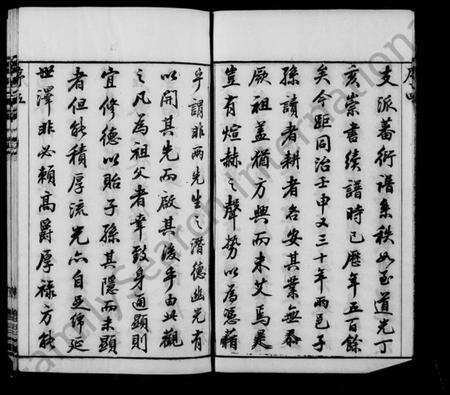 支派蕃衍譜系秩如至道光丁
亥崇書續譜時已歷年五百餘
矣今距同治壬申又三十年兩邑子
孫讀者耕者各安其業無忝
厥祖蓋猶方興而未艾焉是
豈有煊赫之聲勢以為憑藉
乎謂非兩先生之潛德幽光有
以開其先而啟其後乎由此觀
之凡為祖父者幸致身通顯則
宜修德以貽子孫其隱而未顯
者但能積厚流光亦自足綿延
世澤非必賴高爵厚祿方能
FamilySearch International